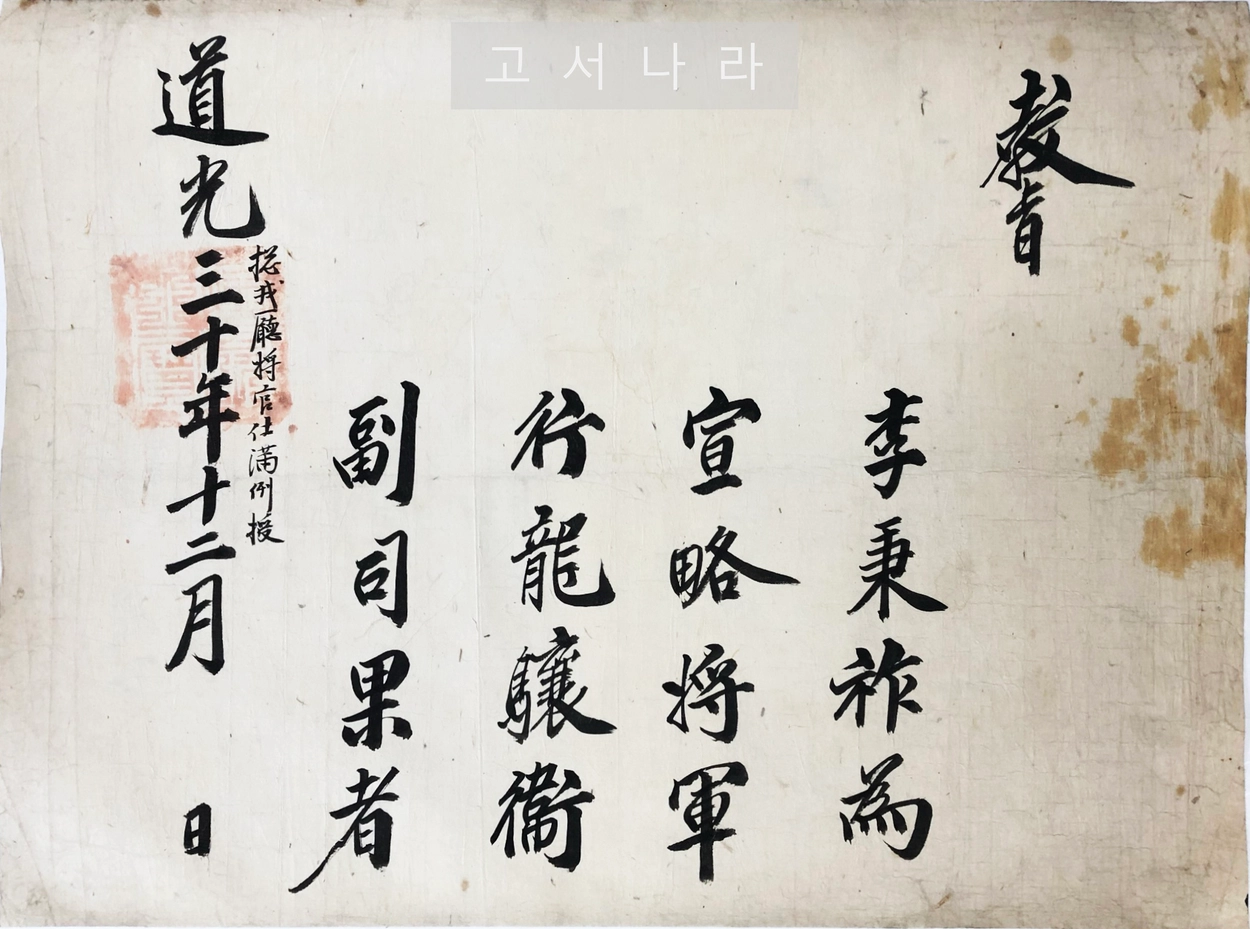 고서나라
教旨
李秉祚為
宣略將軍
行龍驤衛
副司果者
道光三十年十二月 日
摠戎廳將官仕滿例授